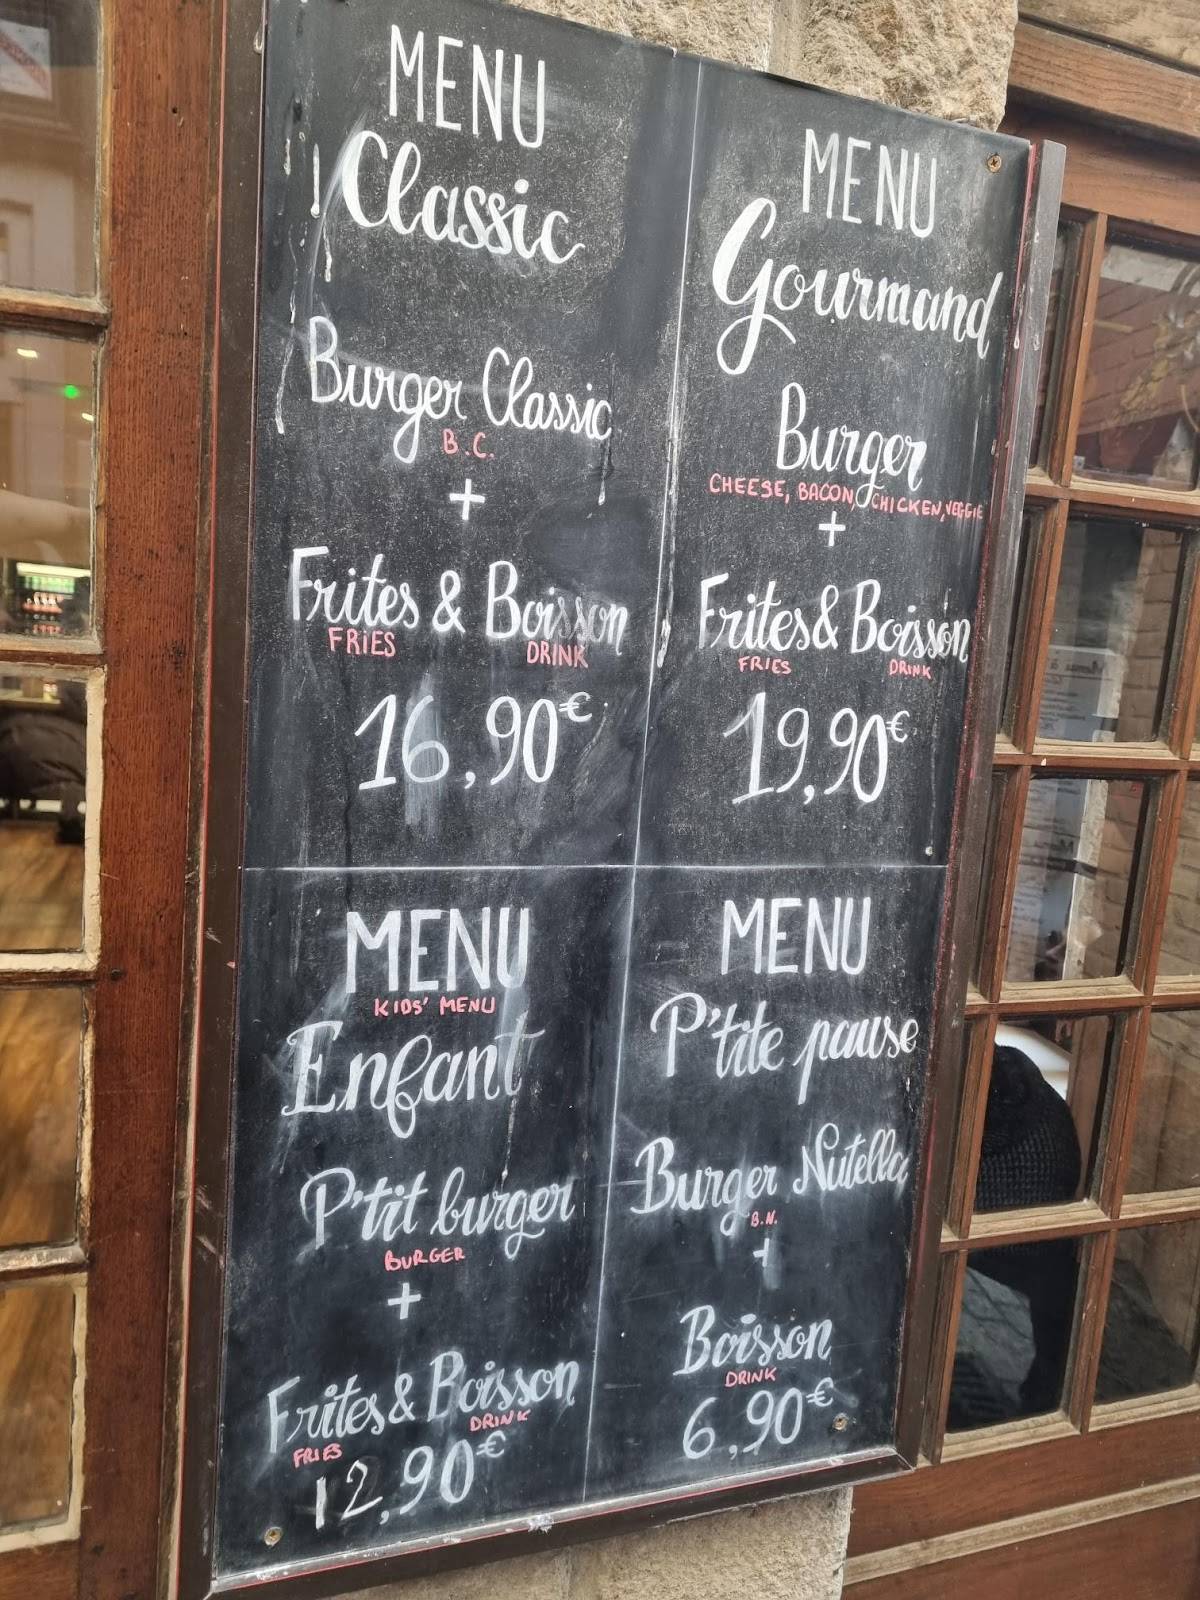 MENU
Classic
Burger Classic
B.C.
+
Frites & Boisson
FRIES DRINK
16,90€
MENU
Gourmand
Burger
CHEESE, BACON, CHICKEN, VEGGIE
+
Frites & Boisson
FRIES DRINK
19,90€
MENU
KIDS' MENU
Enfant
P'tit burger
BURGER
+
Frites & Boisson
FRIES DRINK
12,90€
MENU
P'tite pause
Burger Nutella
B.N.
+
Boisson
DRINK
6,90€